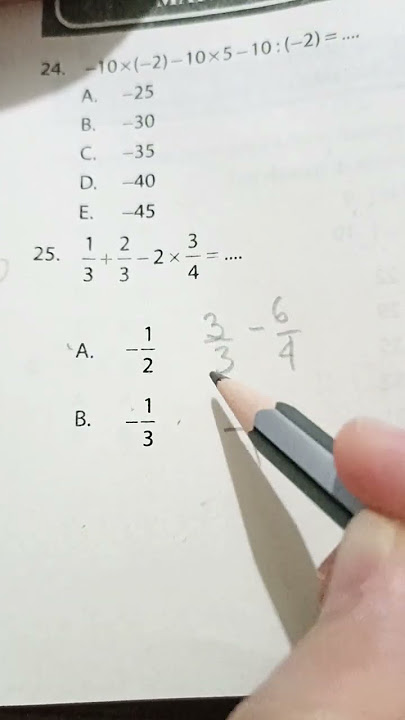 24. −10×(−2)−10×5−10:(−2)=....
A. −25
B. −30
C. −35
D. −40
E. −45
25. 1/3 + 2/3 − 2 × 3/4 = ....
A. −1/2 3/3 − 6/4
B. −1/3